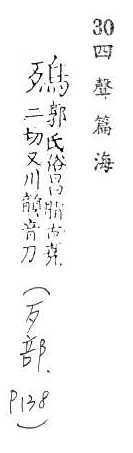 30 四聲篇海
郭氏俗昌古堯
二切又川韻音刀
(歹部.
P138)